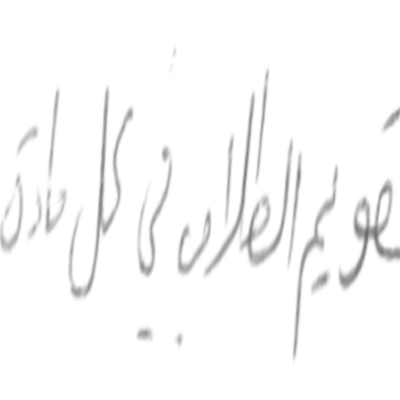 تقويم الطلاب في كل مادة